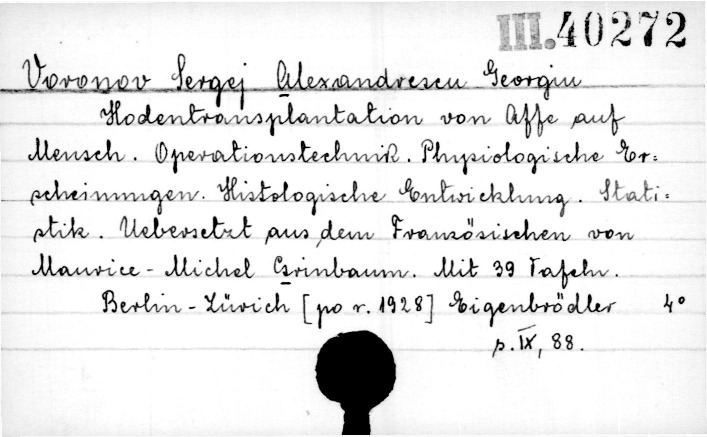 III.40272
Voronov Sergej Alexandrescu Georgiu
Hodentransplantation von Affe auf
Mensch. Operationstechnik. Physiologische Er=
scheinungen. Histologische Entwicklung. Stati=
stik. Uebersetzt aus dem Französischen von
Maurice-Michel Grinbaum. Mit 39 Tafeln.
Berlin-Zürich [po r. 1928] Eigenbrödler 4°
p. IX, 88.